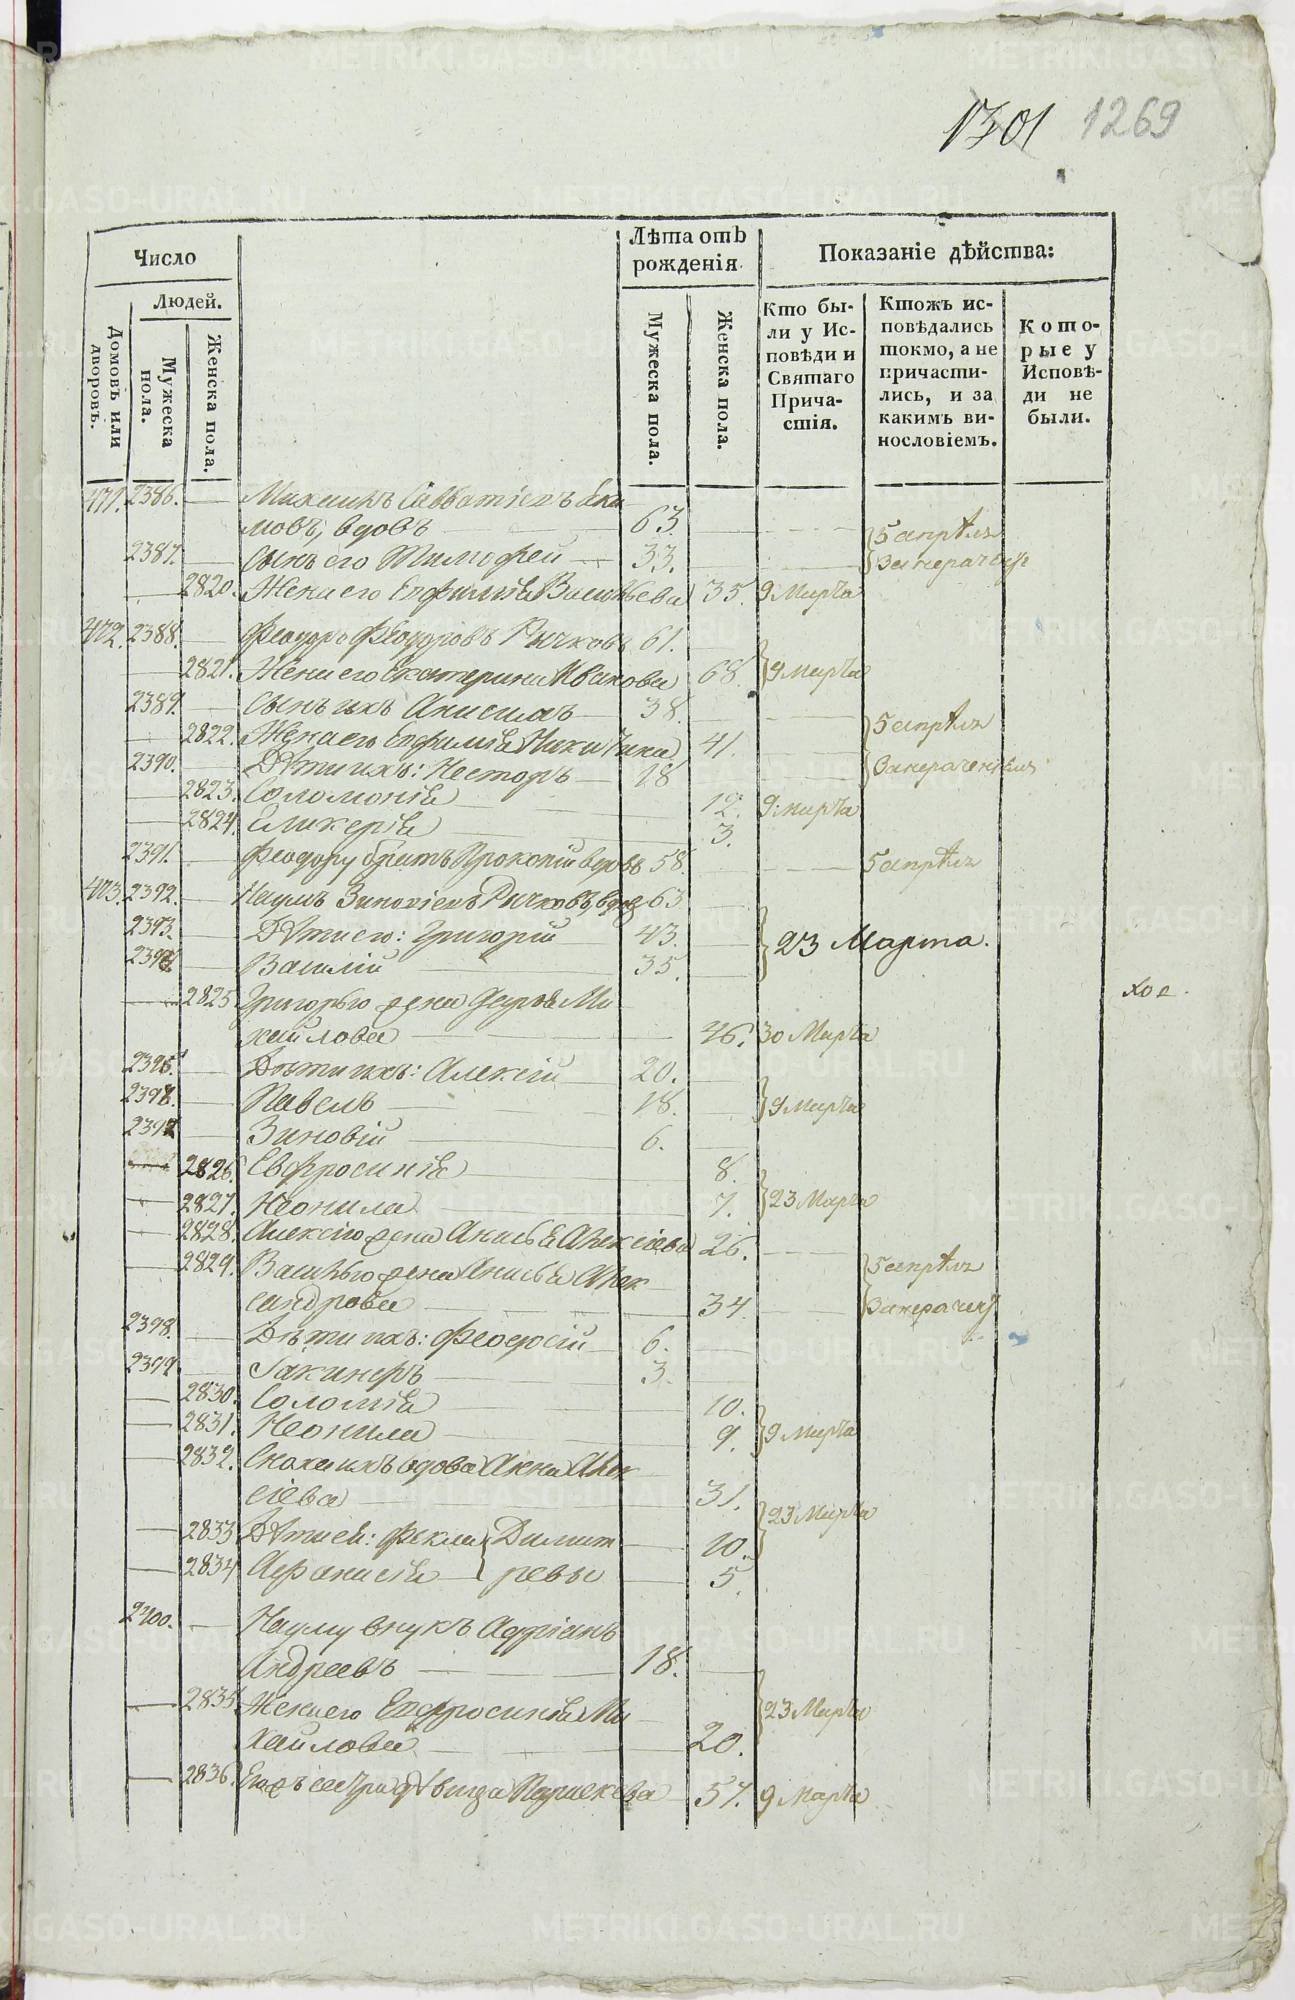 1301 1269
Число
Лѣта отъ рожденія
Показаніе дѣйства:
Людей.
Домовъ или дворовъ.
Мужеска пола.
Женска пола.
Мужеска пола.
Женска пола.
Кто были у Исповѣди и Святаго Причастія.
Ктожъ исповѣдались токмо, а не причастились, и за какимъ винословіемъ.
Которые у Исповѣди не были.
471. 2386. Савватіевъ
мовъ, вдовъ 63.
5 апрѣля
2387. Сынъ его Тимофей 33.
2820. Жена его Евфимія Васильева 35. 9 Марта
472. 2388. Феодоръ Феодоровъ Рычковъ 61.
2821. Жена его Екатерина Иванова 68. 9 марта
2389. Сынъ ихъ Анисимъ 38.
5 апрѣля
2822. Жена его Евфимія Никитина 41.
2390. Дѣти ихъ: Несторъ 18
2823. Соломонія 12. 9 марта
2824. Гликерія 3.
2391. Феодору братъ Прокопій вдовъ 58. 5 апрѣля
473. 2392. Наумъ Зиновіевъ Рычковъ, вдовъ 63
2393. Дѣти его: Григорій 43. 23 Марта.
2394. Василій 35.
2825 Григорью жена Дарья Ми
хайлова 46. 30 Марта
2395. Дѣти ихъ: Алексій 20.
2398. Павелъ 18. 9 Марта
2397 Зиновій 6.
2826. Евфросинія 8.
2827. Неонила 7. 23 Марта
2828. Алексію жена Анисья Алексіева 26.
5 апрѣля
2829. Василью жена Анисья Алек
сандрова 34
2398. Дѣти ихъ: Феодосій 6.
2399. Іакинфъ 3.
2830. Соломія 10.
2831. Неонила 9. 9 Марта
2832. Сноха ихъ вдова Анна Алек
сіева 31.
23 Марта
2833 Дѣти ей: Фекла Димит 10.
2834 Афанасія ревы 5.
2400. Науму внукъ Адріанъ
Андреевъ 18.
2835 Жена его Евфросинія Ми
23 Марта
хайлова 20.
2836. сестра дѣвица Параскева 57. 9 Марта